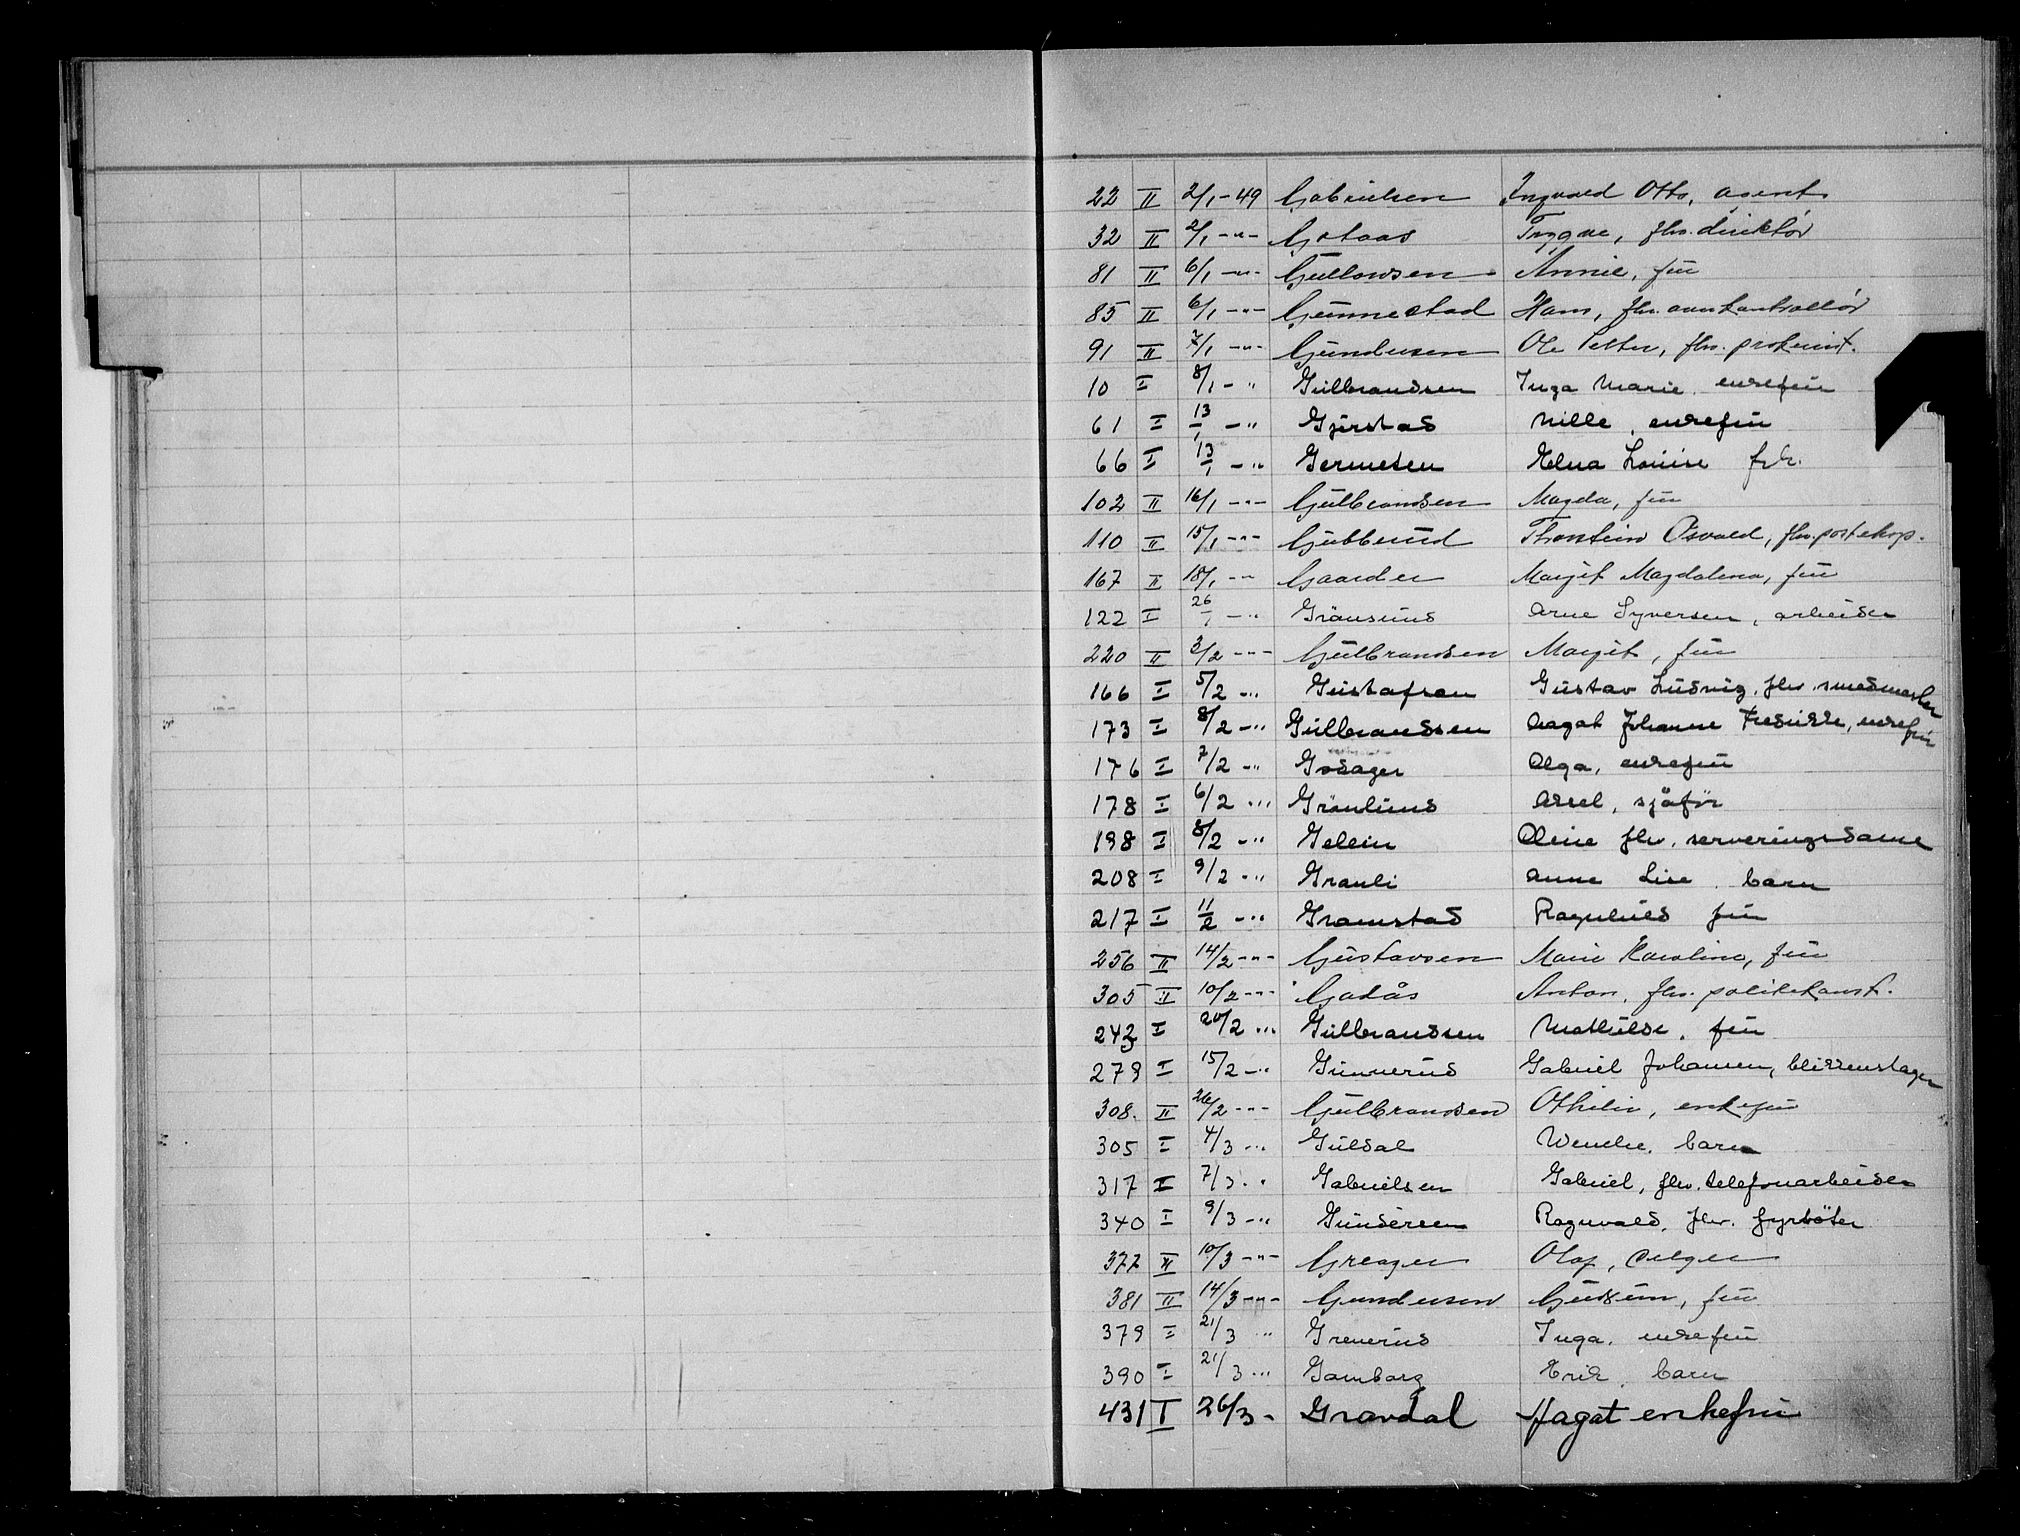 22 II 2/1-49 Gabrielsen Ingvald Otto, agent
32 II 2/1 -"- Gotaas Trygve, fhv. direktör
81 II 6/1 -"- Gullowsen Annie, fru
85 II 6/1 -"- Gunnestad Hans, fhv.
91 II 7/1 -"- Gundersen Ole Petter, fhv. prokurist.
10 I 8/1 - " Gulbrandsen Inga Marie enkefru
61 I 13/1 - " Gjerstad Nille, enkefru
66 I 13/1 - " Germeten Edna Louise frk.
102 II 16/1 -"- Gulbrandsen Magda, fru
110 II 15/1 -"- Gubberud Thorstein Osvald, fhv. posteksp.
167 II 18/1 -"- Gaarder Margit Magdalena, fru
122 I 26/1 - " Grönsund Arne Syversen, arbeider
220 II 3/2 -"- Gulbrandsen Margit, fru
166 I 5/2 - " Gustafson Gustav Ludvig, fhv. smedmester
173 I 8/2 - " Gulbrandsen Aagot Johanne Fredrikke, enkefru
176 I 7/2 - " Godager Olga, enkefru
178 I 6/2 - " Grönlund Aksel, sjåför
198 I 8/2 - " Gelein Oline fhv. serveringsdame
208 I 9/2 - " Granli Anne Lise, barn
217 I 11/2 - " Gramstad Ragnhild fru
256 II 14/2 -"- Gustavsen Marie Karoline, fru
305 II 10/2 -"- Gadås Anton, fhv. politikonst.
242 I 20/2 - " Gulbrandsen Mathilde, fru
279 I 15/2 - " Gunnerud Gabriel Johansen, blikkenslager
308. II 26/2 -"- Gulbrandsen Othilie, enkefru
305 I 4/3 - " Guldal Wenche, barn
317 I 7/3 - " Gabrielsen Gabriel, fhv. telefonarbeider
340 I 9/3 - " Gundersen Ragnvald, fhv. fyrböter
377 II 10/3 -"- Greager Olaf, selger
381 II 14/3 -"- Gundersen Gudrun, fru
379 I 21/3 " Grenerud Inga, enkefru
390 I 21/3 - " Gamborg Erik, barn
431 I 26/3 - Gravdal Aagot enkefru